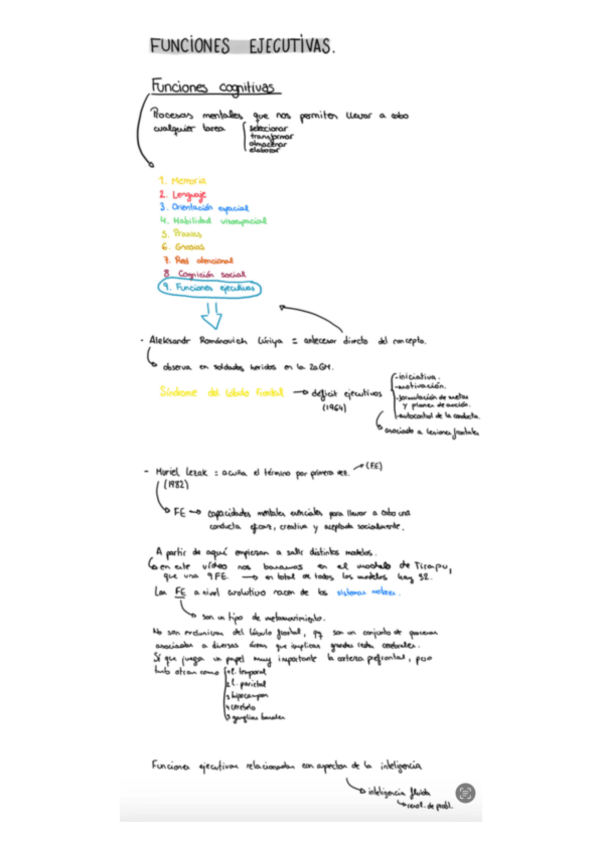 FUNCIONES EJECUTIVAS.
Funciones cognitivas
Procesos mentales que nos permiten llevar a cabo
cualquier tarea
seleccionar
transformar
almacenar
elaborar
1. Memoria
2. Lenguaje
3. Orientación espacial
4. Habilidad visoespacial
5. Praxias
6. Gnosias
7. Red atencional
8. Cognición social
9. Funciones ejecutivas
· Aleksandr Románovich Lúriya = antecesor directo del concepto.
observa en soldados heridos en la 2aGM.
Síndrome del lóbulo frontal → déficit ejecutivos
(1964)
-iniciativa.
-motivación.
-formulación de metas
y planes de acción.
-autocontrol de la conducta.
asociado a lesiones frontales
- Muriel Lezak = acuña el término por primera vez. → (FE)
(1982)
FE → capacidades mentales esenciales para llevar a cabo una
conducta eficaz, creativa y aceptada socialmente.
A partir de aquí empiezan a salir distintos modelos.
en este vídeo nos basamos en el modelo de Tirapu,
que usa 9 FE. → en total de todos los modelos hay 32.
Las FE a nivel evolutivo nacen de los sistemas motores.
son un tipo de metamovimiento.
No son exclusivas del lóbulo frontal, pq son un conjunto de procesos
asociados a diversas áreas que implican grandes redes cerebrales.
Sí que juega un papel muy importante la corteza prefrontal, pero
tmb otras como
1 l. temporal
2 l. parietal
3 hipocampos
4 cerebelo
5 ganglios basales
Funciones ejecutivas relacionadas con aspectos de la inteligencia
inteligencia fluida
resol. de probl.